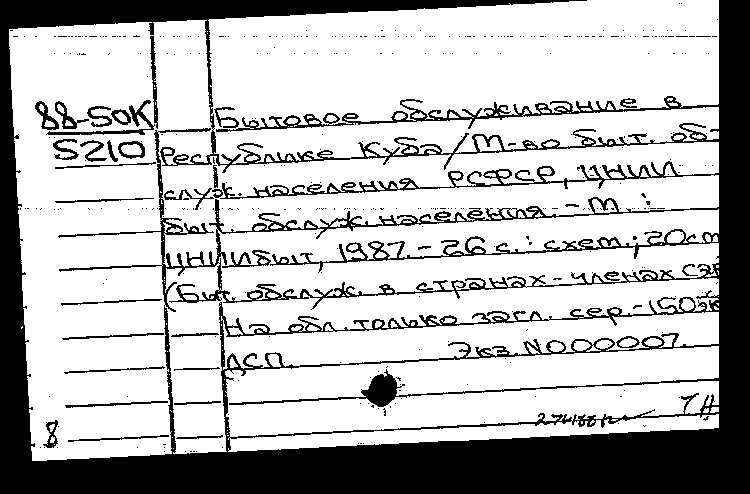 88-50К Бытовое обслуживание в
5210 Республике Куба / М-во быт. об-
служ. населения РСФСР, ЦНИИ
быт. обслуж. населения. - М. :
ЦНИИбыт, 1987. - 26 с. : схем.; 20см
(Быт. обслуж. в странах - членах СЭВ
На обл. только загл. сер. - 150эк
ДСП. Экз. N000007.
8